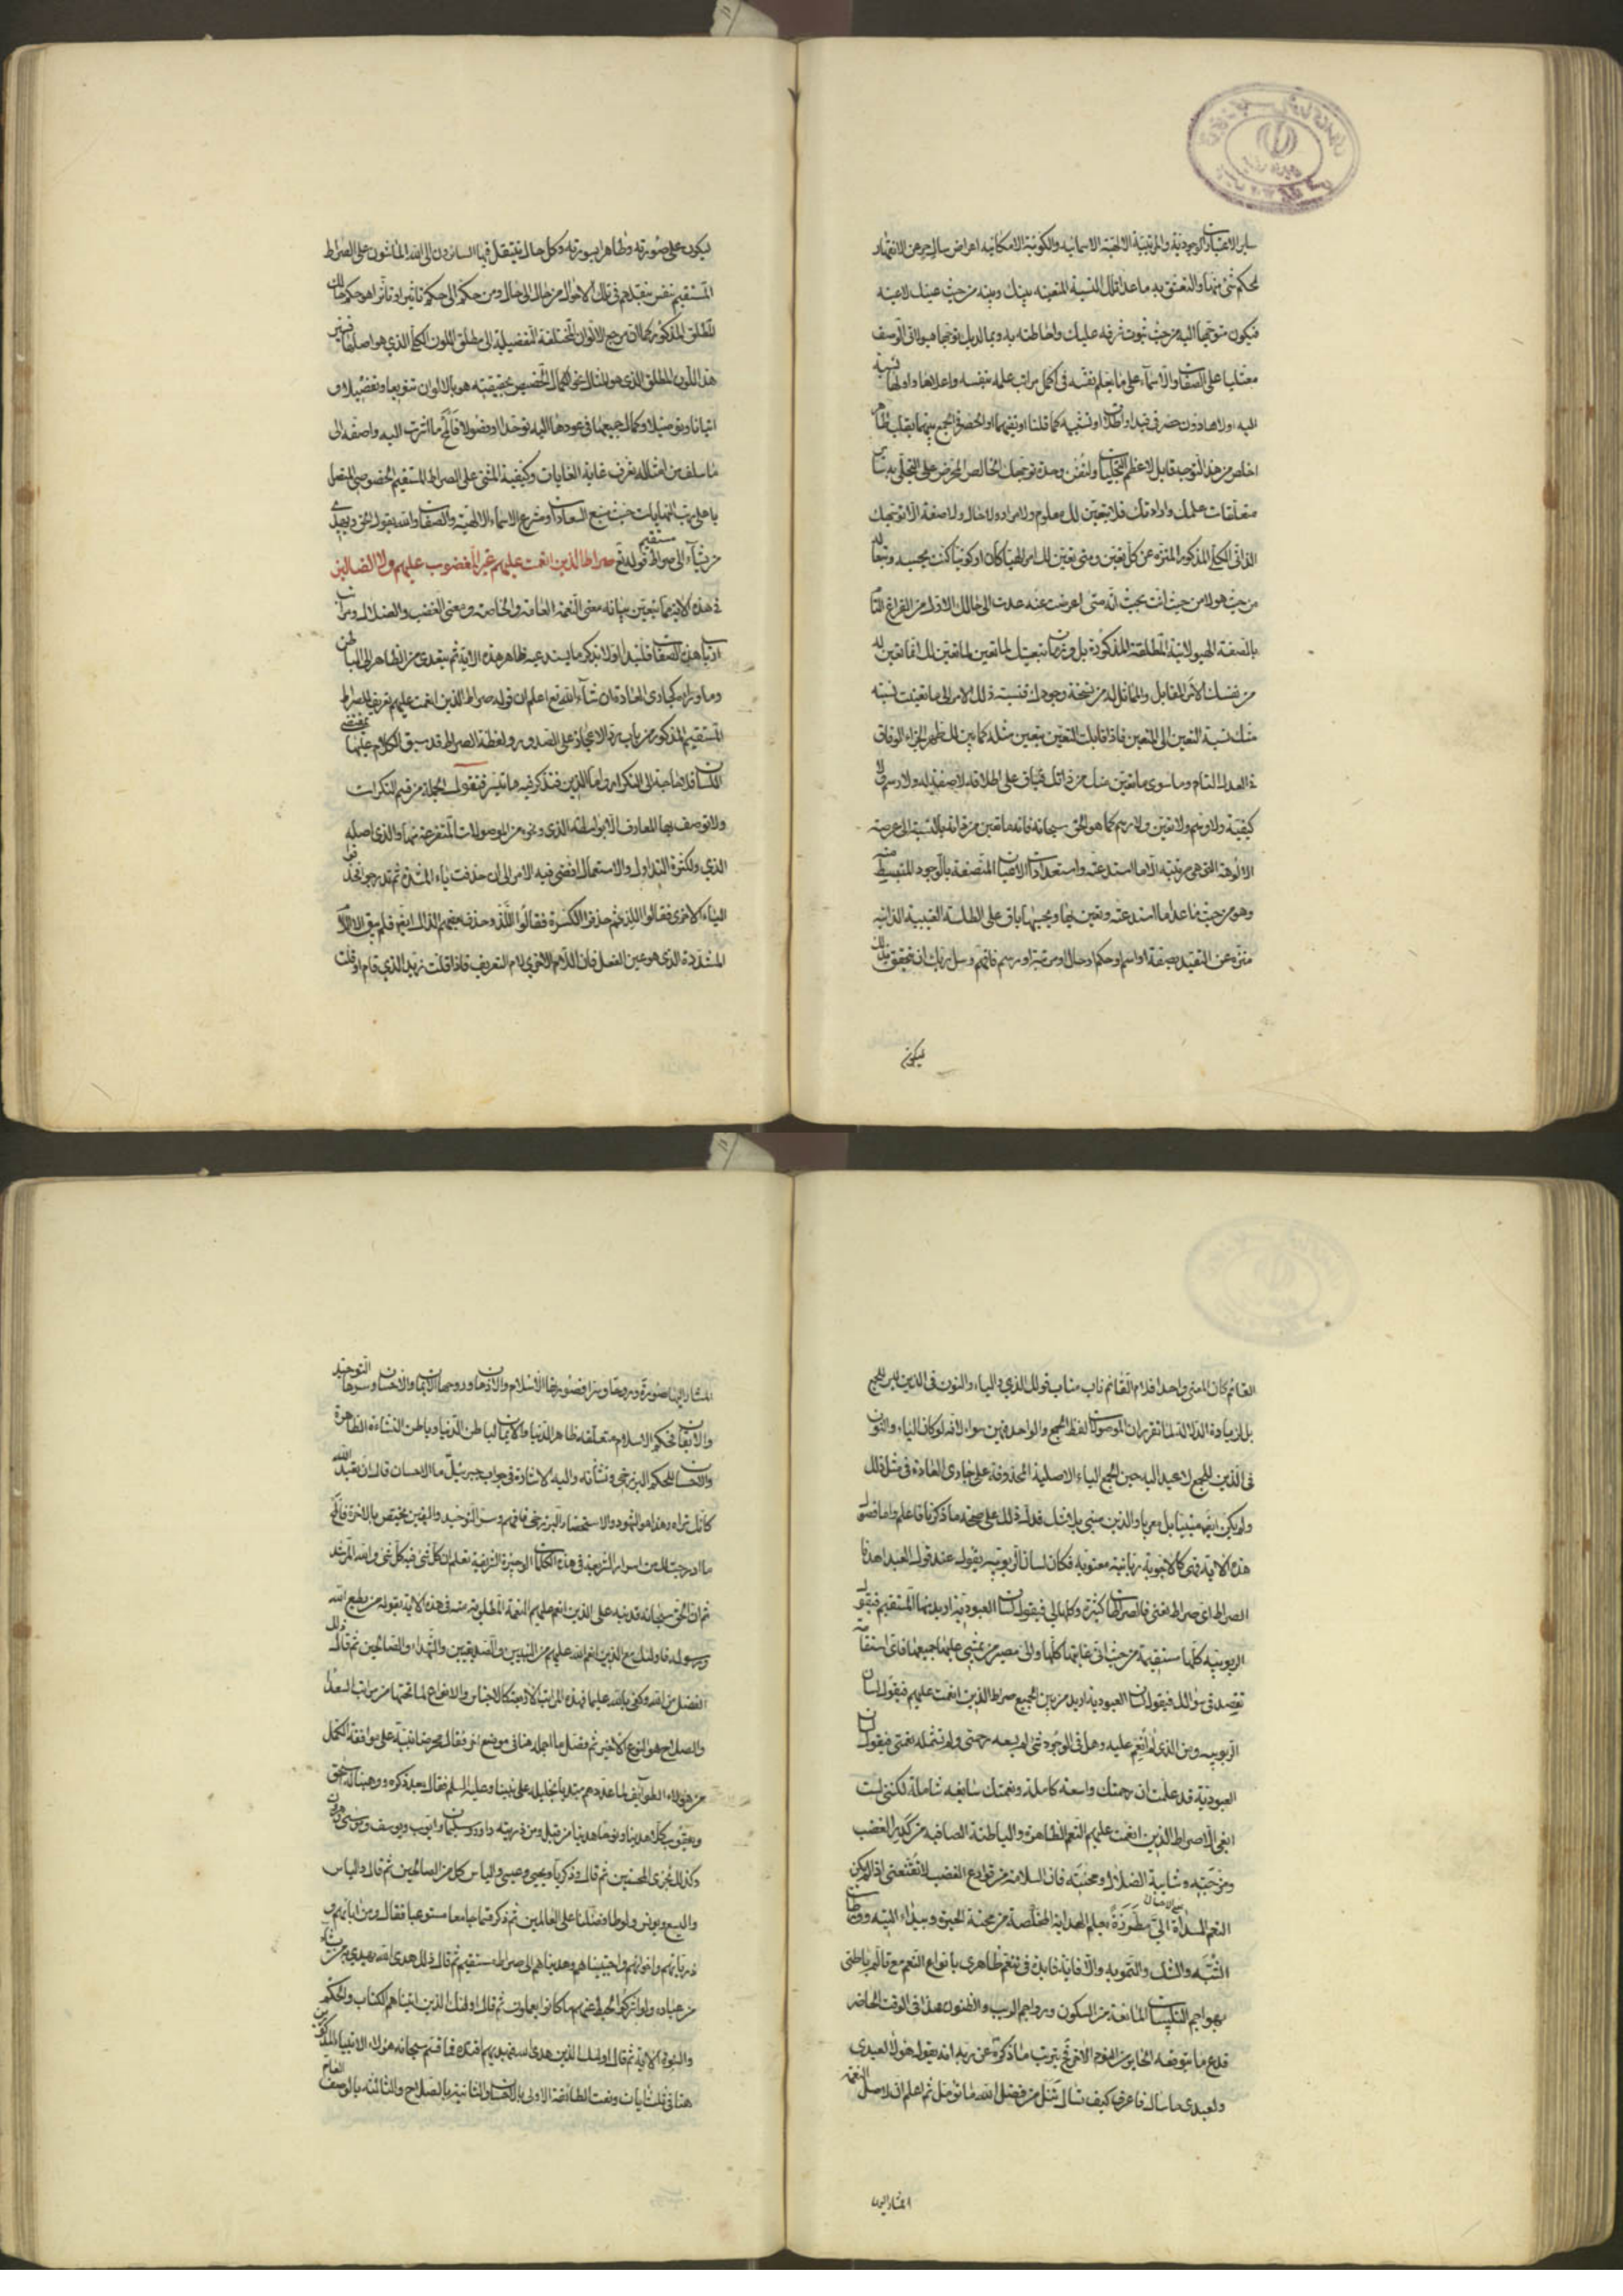 ساير الاعتبارات الوجودية والمرتبية الالهية الاسمائية والكونية الامكانية اعراض سال حر عن الانقهار
لحكم شئ منها والتعشق به ما عدا تلك النسبة المتعينة بينك وبينه من حيث عينك لا عينه
فيكون توجهها اليه من حيث ثبوت شرفه عليك واحاطته به وبما لديك توجها هيولانى الوصف
معتليا على الصفات والاسماء على ما يعلم نفسه فى اكمل مراتب علمه بنفسه واعلاها واولها نسبة
اليه اولاها دون حصر فى قيد او اطلاق او تشبيه كما قلنا او نفيهما او الحصر فى الجمع بينهما بقلب طاهر
اخلص من هذا التوجه قابل لاعظم التجليات ولتفن وحدة توجهك الخالص المحرض على التجلى به ساير
متعلقات علمك وارادتك فلا يتعين لك معلوم ولا مراد ولا حال ولا صفة الا توجهك
الذاتى الكلى المذكور المنزه عن كل تعين ومتى تعين لك امر الهيا كان او كونيا كنت بحسبه وتبعا له
من حيث هو لا من حيث انت بحيث انه متى اعرضت عنه عدت الى حالك الاول من الفراغ التام
بالصفة الهيولانية المطلقة المذكورة بل وزمان تبعيتك لما تعين لما تعين لك انما تعين له
من نفسك الامر المقابل والمماثل له من نسخة وجودك فنسبة ذلك الامر الى ما تعينت نسبته
منك نسبة التعين الى المتعين فاذا قابلت المتعين بتعين مثله كما بين لك ظهر الجزاء الوفاق
و العدل التام وما سوى ما تعين منك من ذاتك فباق على اطلاقه لا صفة له ولا رسم ولا
كيفية ولا وسم ولا تعين ولا رسم كما هو الحق سبحانه فانه ما تعين من ذاته بالنسبة الى عرصة
الالوهة التى هى مرتبته الا ما استدعته واستعدادات الاعيان المتصفة بالوجود المنبسط منه
وهو من حيث ما عدا ما استدعته وتعين بها وبحسبها باق على الطلسة الغيبية الذاتية
منزه عن التقيد بصفة او اسم او حكم او حال او مرتبة او رسم فافهم وسل ربك ان تتحقق بذلك
ليكون
ليكون على صورته وظاهرا بسورته وكل حال يتقلب فيها السائرون الى الله الماشون على الصراط
المستقيم نفس تنقلهم فى تلك الاحوال من حال الى حال ومن حكم الى حكم تاثيرا وتاثرا هو حكم حالك
المطلق المذكور كما ان مرجع الالوان المختلفة التفصيلية الى مطلق اللون الكلى الذى هو اصلها فتغير
هذا اللون المطلق الذى هو المثال نحو الكمال المخصيص بحقيقته هو بالالوان تنويعا وتفصيلا و
اتيانا وتوصيلا وكمال جميعها فى عودها اليه توحدا ووصولا فافهم ما اشرت اليه واضفه الى
ما سلف من امثاله تعرف غاية الغايات وكيفية المشى على الصراط المستقيم الخصوصى المتصل
باعلى رتب النهايات حيث منبع السعادات ومشرع الاسماء الالهية والصفات والله يقول الحق ويهدى
من يشاء الى صراط مستقيم قوله تع صراط الذين انعمت عليهم غير المغضوب عليهم ولا الضالين
فى هذه الاية مما يتعين بيانه معنى النعمة العامة والخاصة ومعنى الغضب والضلال ومراتب
ارباب هذه الصفات فلنبدا اولا بذكر ما يستدعيه ظاهر هذه الاية ثم نتعدى من الظاهر الى الباطن
وما وراه كجارى العادة ان شاء الله تع اعلم ان قوله صراط الذين انعمت عليهم تعريف للصراط
المستقيم المذكور من باب رد الاعجاز على الصدور ولفظة الصراط قد سبق الكلام عليها بمقتضى
اللسان فلا حاجة الى التكرار واما الذين فنذكر فيه ما تيسر فنقول الجملة من قسم النكرات
ولا توصف بها المعارف الا بواسطة الذى ونحوه من الموصولات المتفرعة منها والذى اصله
الذى ولكثرة التداول والاستعمال افضى فيه الامر الى ان حذفت ياء المشددة ثم تدرجوا فحذفوا
الياء الاخرى فقالوا اللذ ثم حذفوا الكسرة فقالوا اللذ وحذف بعضهم الذال ايضا فلم يبق الا اللام
المشددة الذى هو عين الفعل فان اللام الاخرى لام التعريف فاذا قلت زيد الذى قام او قلت
القائم كان المعنى واحدا فلام القائم ناب مناب قولك الذى والياء والنون فى الذين ليس للجمع
بل لزيادة الدلالة لما تقرر ان الموصولات لفظ الجمع والواحد فيهن سواء لانه لو كان الياء والنون
فى الذين للجمع لاعيد اليه حين الجمع الياء الاصلية المحذوفة على جارى العادة فى مثل ذلك
ولم يكن ايضا مبنيا بل معربا والذين مبنى بلا شك فدل ذلك على صحة ما ذكرنا فاعلم واما فصول
هذه الاية فهى كالاجوبة ربانية معنوية فكان لسان الربوبية يقول عند قول العبد اهدنا
الصراط اى صراط اعنى فالصراطات كثيرة وكلها لى فيقول لسان العبودية اريد منها المستقيم فيقول
الربوبية كلها مستقيمة من حيث انى غايتها كلها والى مصير من يمشى عليها جميعها فاى استقامة
تقصد فى سؤالك فيقول لسان العبودية اريد من بين الجميع صراط الذين انعمت عليهم فيقول لسان
الربوبية ومن الذى لم انعم عليه وهل فى الوجود شئ لم يسعه رحمتى ولم تشمله نعمتى فيقول لسان
العبودية قد علمت ان رحمتك واسعة كاملة ونعمتك سابغة شاملة لكنى لست
ابغى الا صراط الذين انعمت عليهم النعم الظاهرة والباطنة الصافية من كدر الغضب
ومزجته وشايبة الضلال ومحنته فان السلامة من قوارع الغضب لا تقنعنى اذا لم يكن
النعم المسداة الى مطرزة بعلم الهداية المخلصة من محنة الحيرة وبيداء التيه وورطات
الشبه والشك والتمويه والا فاية فايدة فى تنعم ظاهرى بانواع النعم مع تالم باطنى
بهواجم التلبيسات المانعة من السكون ورواجم الريب والظنون هذا فى الوقت الحاضر
فدع ما يتوقعه الحاير من اليوم الاخر فح يترتب ما ذكره عن ربه انه يقول هؤلاء لعبدى
ولعبدى ما سال فاعرف كيف تسال تنل من فضل الله ما تؤمل ثم اعلم ان لاصل النعمة
المشار اليها
المشار اليها صورة وروحا وسرا فصورتها الاسلام والاذعان وروحها الايمان والاحسان وسرها التوحيد
والايقان فحكم الاسلام متعلقه ظاهر الدنيا والايمان لباطن الدنيا وباطن النشاءة الظاهرة
والاحسان للحكم البرزخى ونشأته واليه الاشارة فى جواب جبرئيل ما الاحسان قال ان تعبد الله
كانك تراه وهذا هو الشهود والاستحضار البرزخى فافهم وسر التوحيد واليقين يختص بالاخرة فافهم
ما ادرجت لك من اسرار الشريعة فى هذه الكلمات الوجيزة الشريفة تعلم ان كل شئ فيه كل شئ والله المرشد
ثم ان الحق سبحانه قد نبه على الذين انعم عليهم النعمة المطلوبة منه فى هذه الاية بقوله من يطع الله
ورسوله فاولئك مع الذين انعم الله عليهم من النبيين والصديقين والشهداء والصالحين ثم قال ذلك
الفضل من الله وكفى بالله عليما فهذه المراتب الاربعة كالاجناس والانواع لما تحتها من مراتب السعداء
والصلاح هو النوع الاخير ثم فصل ما اجمله هنا فى موضع اخر فقال محرضا نبيه على موافقة الكمل
من هؤلاء الطوايف لما عددهم مبتديا بخليله على نبينا وعليه السلم فقال بعد ذكره ووهبنا له اسحق
ويعقوب كلا هدينا ونوحا هدينا من قبل ومن ذريته داود وسليمان وايوب ويوسف وموسى وهرون
وكذلك نجزى المحسنين ثم قال وزكريا ويحيى وعيسى والياس كل من الصالحين ثم قال والياس
واليسع ويونس ولوطا وفضلنا على العالمين ثم ذكر قسما جامعا مستوعبا فقال ومن ابائهم و
ذرياتهم واخوانهم واجتبيناهم وهديناهم الى صراط مستقيم ثم قال ذلك هدى الله يهدى به من يشاء
من عباده ولو اشركوا لحبط عنهم ما كانوا يعملون ثم قال اولئك الذين اتيناهم الكتاب والحكم
والنبوة الاية ثم قال اولئك الذين هدى الله فبهديهم اقتده فاقسم سبحانه هؤلاء الانبياء المذكورين
هنا فى ثلث ايات ونعت الطائفة الاولى بالاحسان والثانية بالصلاح والثالثة بالوصف العام